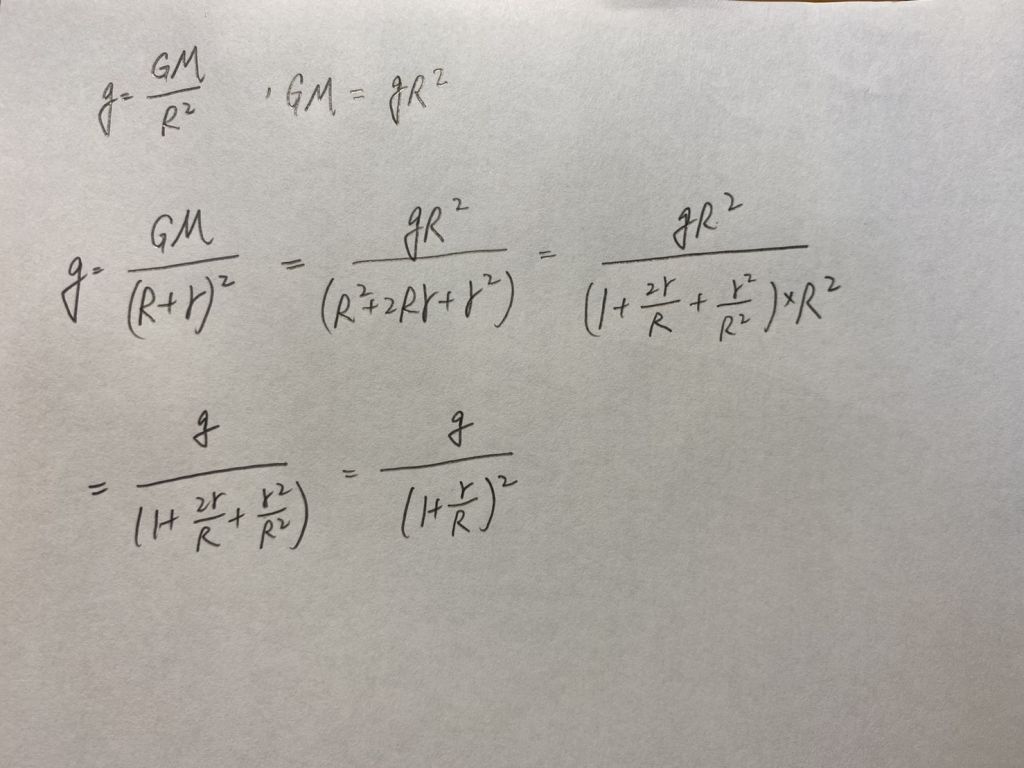 g = GM/R² , GM = gR²
g = GM/(R+r)² = gR²/(R²+2Rr+r²) = gR²/((1+2r/R+r²/R²)×R²)
= g/(1+2r/R+r²/R²) = g/(1+r/R)²